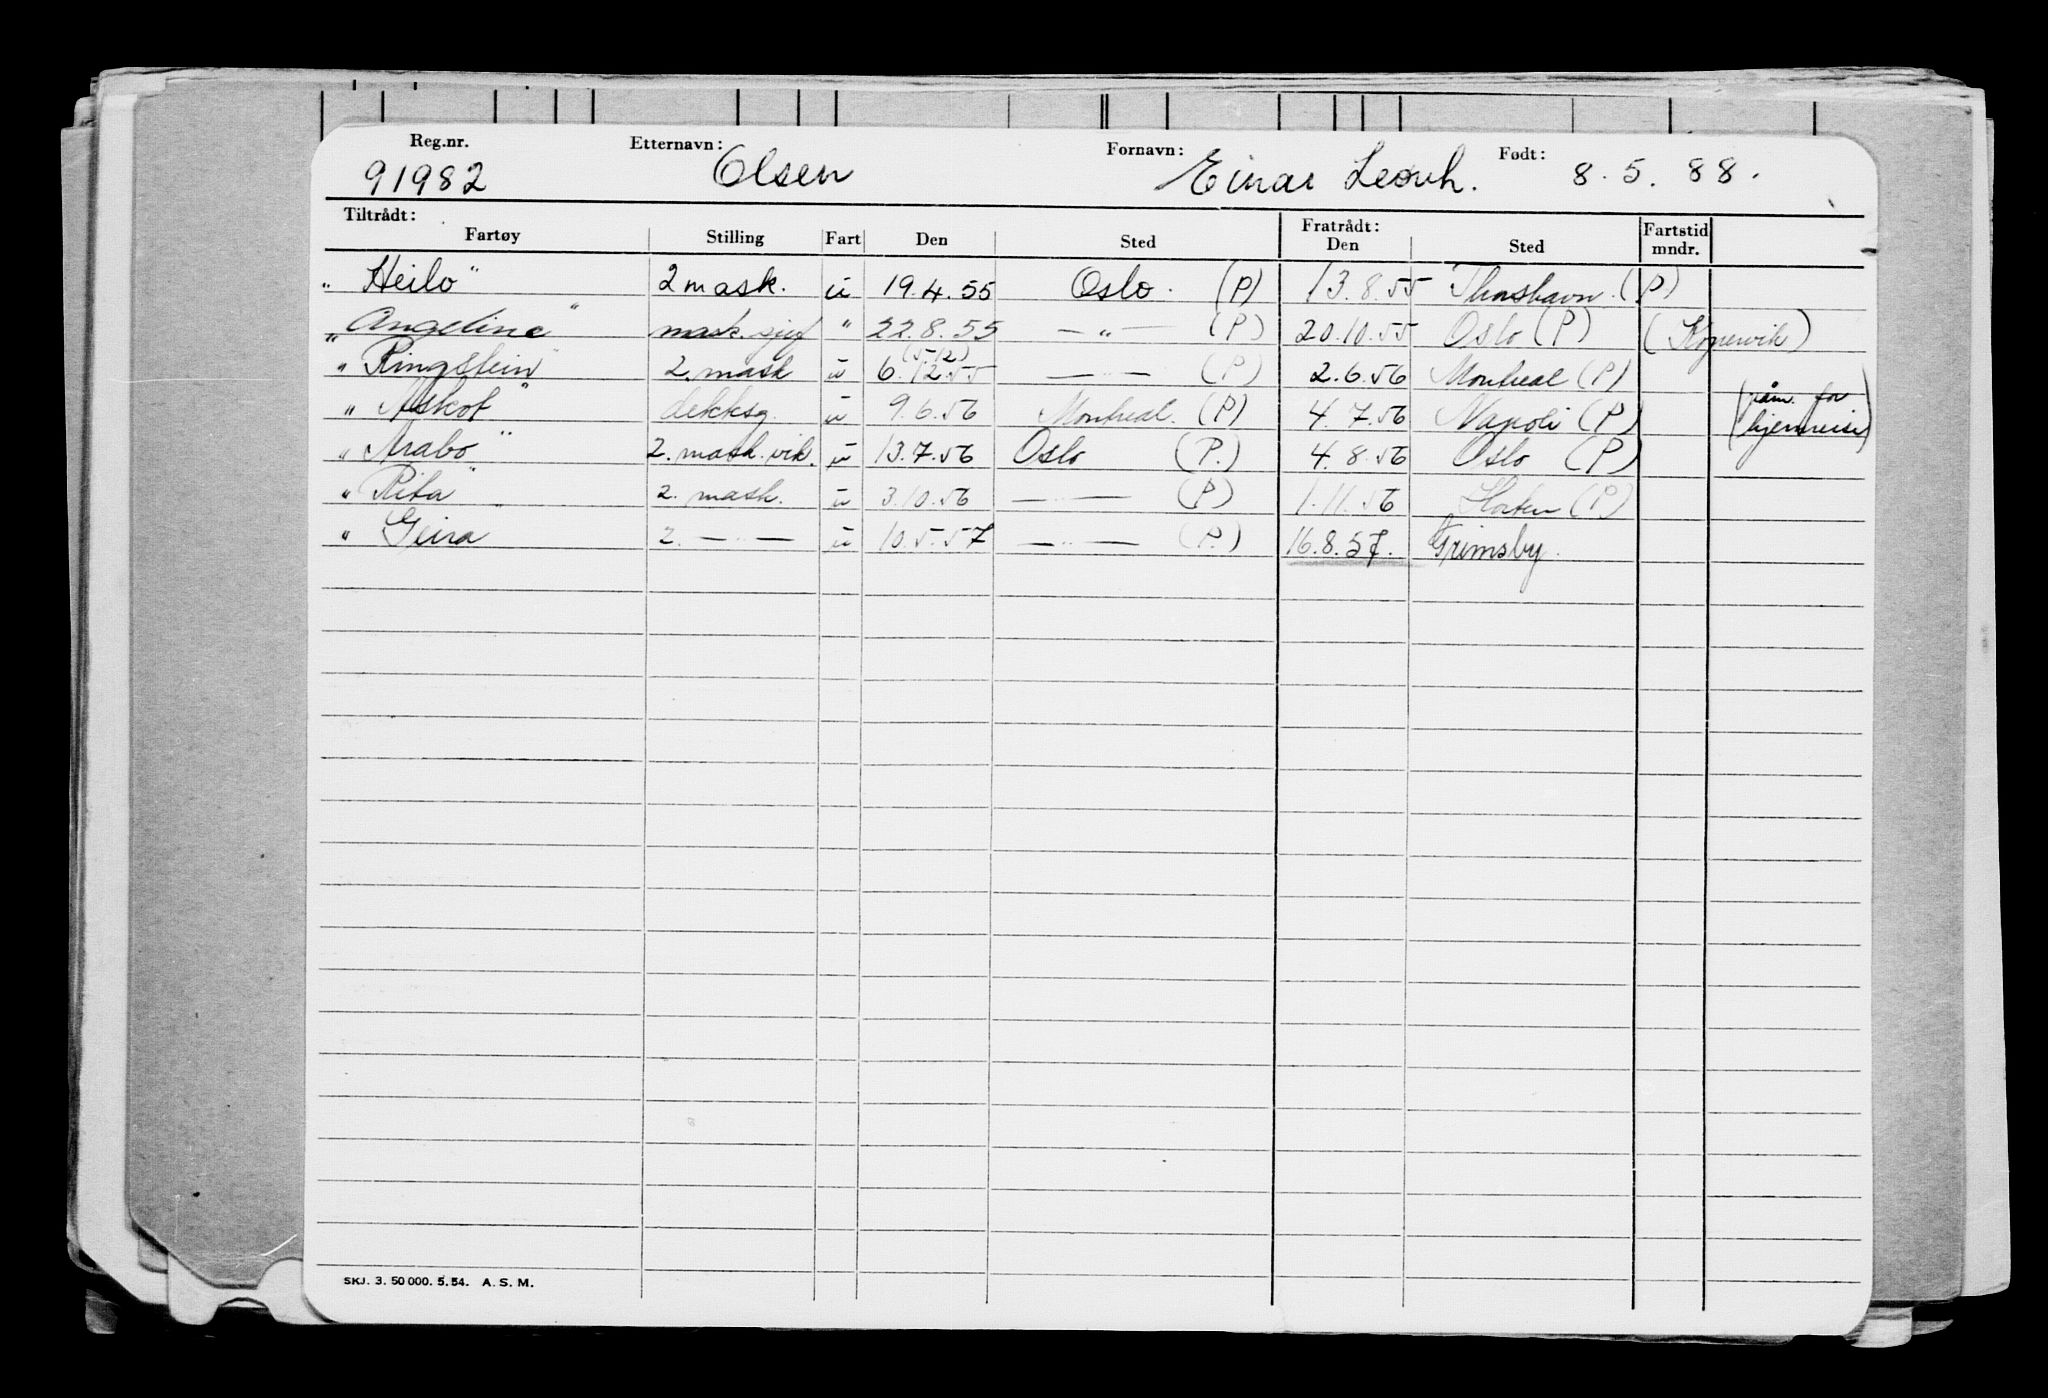 Reg.nr. Etternavn: Fornavn: Født:
91982 Olsen Einar Leonh. 8.5.88.
Tiltrådt: Fratrådt: Fartstid
Fartøy Stilling Fart Den Sted Den Sted mndr.
"Heilo" 2 mask. u 19.4.55 Oslo. (P) 13.8.55 Thorshavn. (P)
"Angeline" mask.sjef " 22.8.55 — " — (P) 20.10.55 Oslo (P) (Kopervik)
(5.12)
"Ringstein" 2. mask u 6.12.55 — " — (P) 2.6.56 Montreal (P)
"Askot" dekksg. u 9.6.56 Montreal. (P) 4.7.56 Napoli (P) (påm. for hjemreise)
"Arabo" 2. mask. vik. u 13.7.56 Oslo (P.) 4.8.56 Oslo (P)
"Rita" 2. mask. u 3.10.56 — " — (P) 1.11.56 Horten (P)
"Geira" 2. — " — u 10.5.57 — " — (P.) 16.8.57. Grimsby.
SKJ. 3. 50 000. 5. 54. A. S. M.